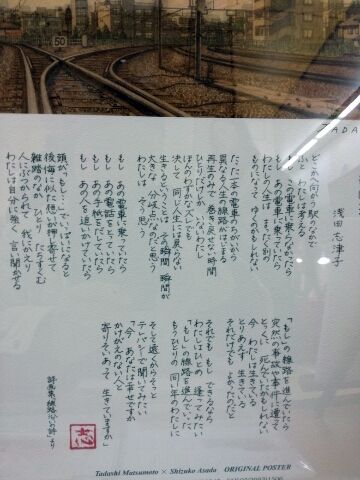 50
TADA
浅田志津子
どこかへ向かう 駅のなかで
ふと わたしは考える
もし この電車に乗らなかったら
もし あの電車に乗っていたら
わたしの人生は まったく別の
ものになって ゆくのかもしれない
たった一本の電車のちがいから
異なる人生の線路がはじまる
再生のみで 巻き戻せない時間
ひとりだけしか いないわたし
ほんのわずかなズレでも
決して 同じ人生には戻らない
生きるということは その瞬間 瞬間が
大きな分岐点なのだと思う
わたしは
もし あの電車に乗っていたら
もし あの電話をとっていたら
もし あの手紙をだしていたら
もし あの人を追いかけていたら
頭が「もし…」でいっぱいになると
後悔に似た思いが押し寄せて
雑踏のなか ひとり たちすくむ
人にぶつかられて 我にかえり
わたしは自分に 言い聞かせる
「もし」の線路を進んでいたら
突然の事故や事件に遭って
とっくに 死んでいたかもしれない
今 わたしは生きている
とりあえず 生きている
それだけでも よかったのだと
それでも もし できるなら
わたしはひとめ 逢ってみたい
「もし」の線路を進んでいった
もうひとりの 同い年のわたしに
そして遠くからそっと
テレパシーで聞いてみたい
「今 あなたは幸せですか
かけがえのない人と
寄りそいあって 生きていますか」
詩画集「線路沿いの詩」より
志
Tadashi Matsumoto × Shizuko Asada ORIGINAL POSTER